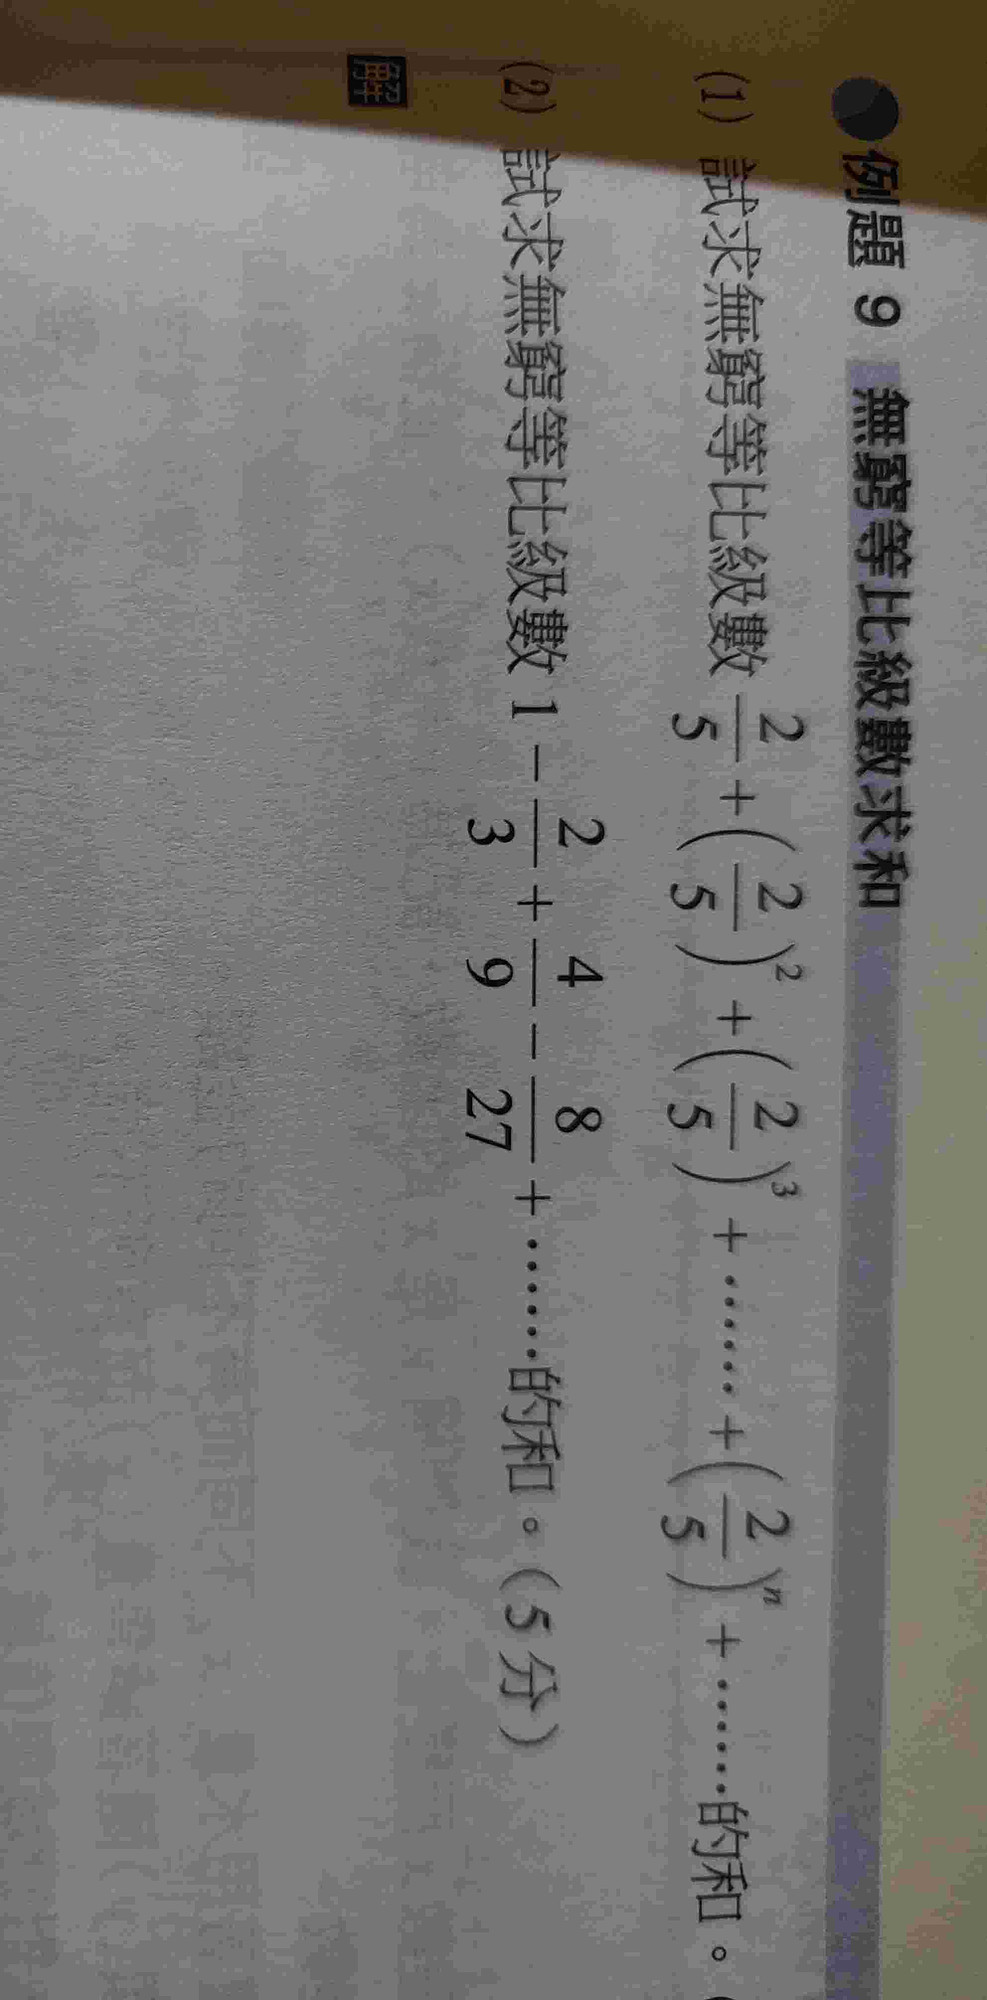 例題 9 無窮等比級數求和
(1) 試求無窮等比級數 2/5 + (2/5)² + (2/5)³ + …… + (2/5)ⁿ + ……的和。(
(2) 試求無窮等比級數 1 − 2/3 + 4/9 − 8/27 + ……的和。(5 分)
解